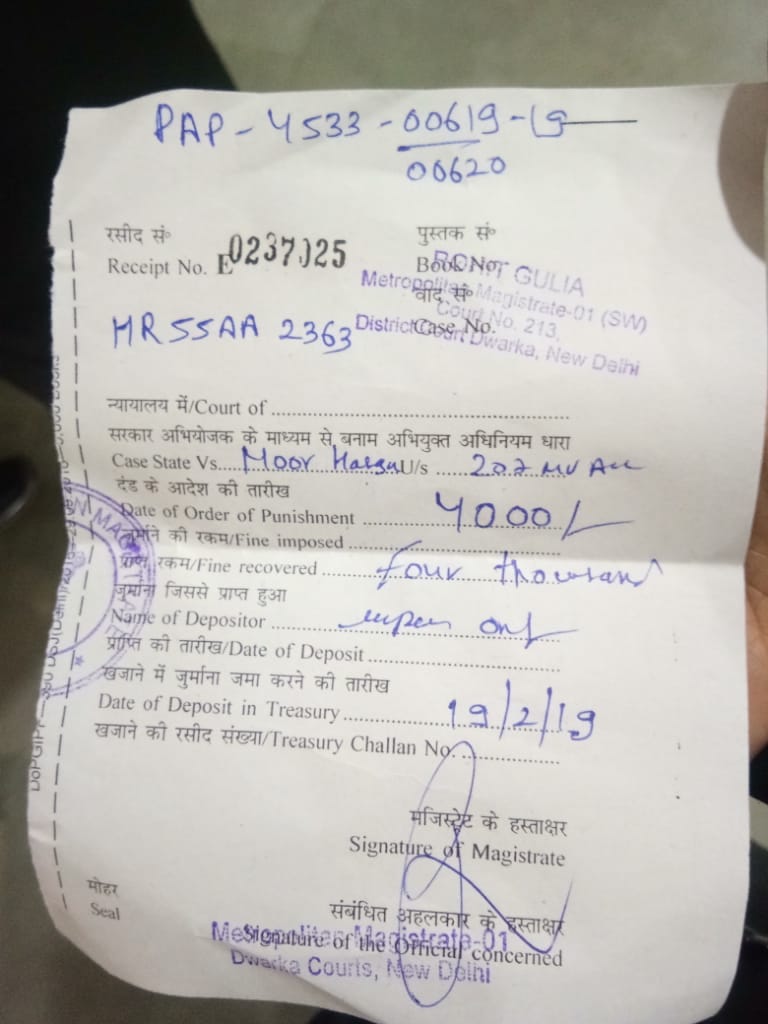 PAP - 4533 - 00619 - 19
00620
रसीद सं॰
Receipt No. E 0237025
पुस्तक सं॰
Book No.
ROHIT GULIA
Metropolitan Magistrate-01 (SW)
Court No. 213,
District Court Dwarka, New Delhi
वाद सं॰
Case No.
HR55AA 2363
न्यायालय में/Court of
सरकार अभियोजक के माध्यम से बनाम अभियुक्त अधिनियम धारा
Case State Vs. Moor U/s 207 MV Act
दंड के आदेश की तारीख
Date of Order of Punishment
4000/
जुर्माने की रकम/Fine imposed
प्राप्त रकम/Fine recovered four thousand
जुर्माना जिससे प्राप्त हुआ
Name of Depositor
प्राप्ति की तारीख/Date of Deposit
खजाने में जुर्माना जमा करने की तारीख
Date of Deposit in Treasury 19/2/19
खजाने की रसीद संख्या/Treasury Challan No.
मजिस्ट्रेट के हस्ताक्षर
Signature of Magistrate
मोहर
Seal
संबंधित अहलकार के हस्ताक्षर
Signature of the Official concerned
Metropolitan Magistrate-01
Dwarka Courts, New Delhi